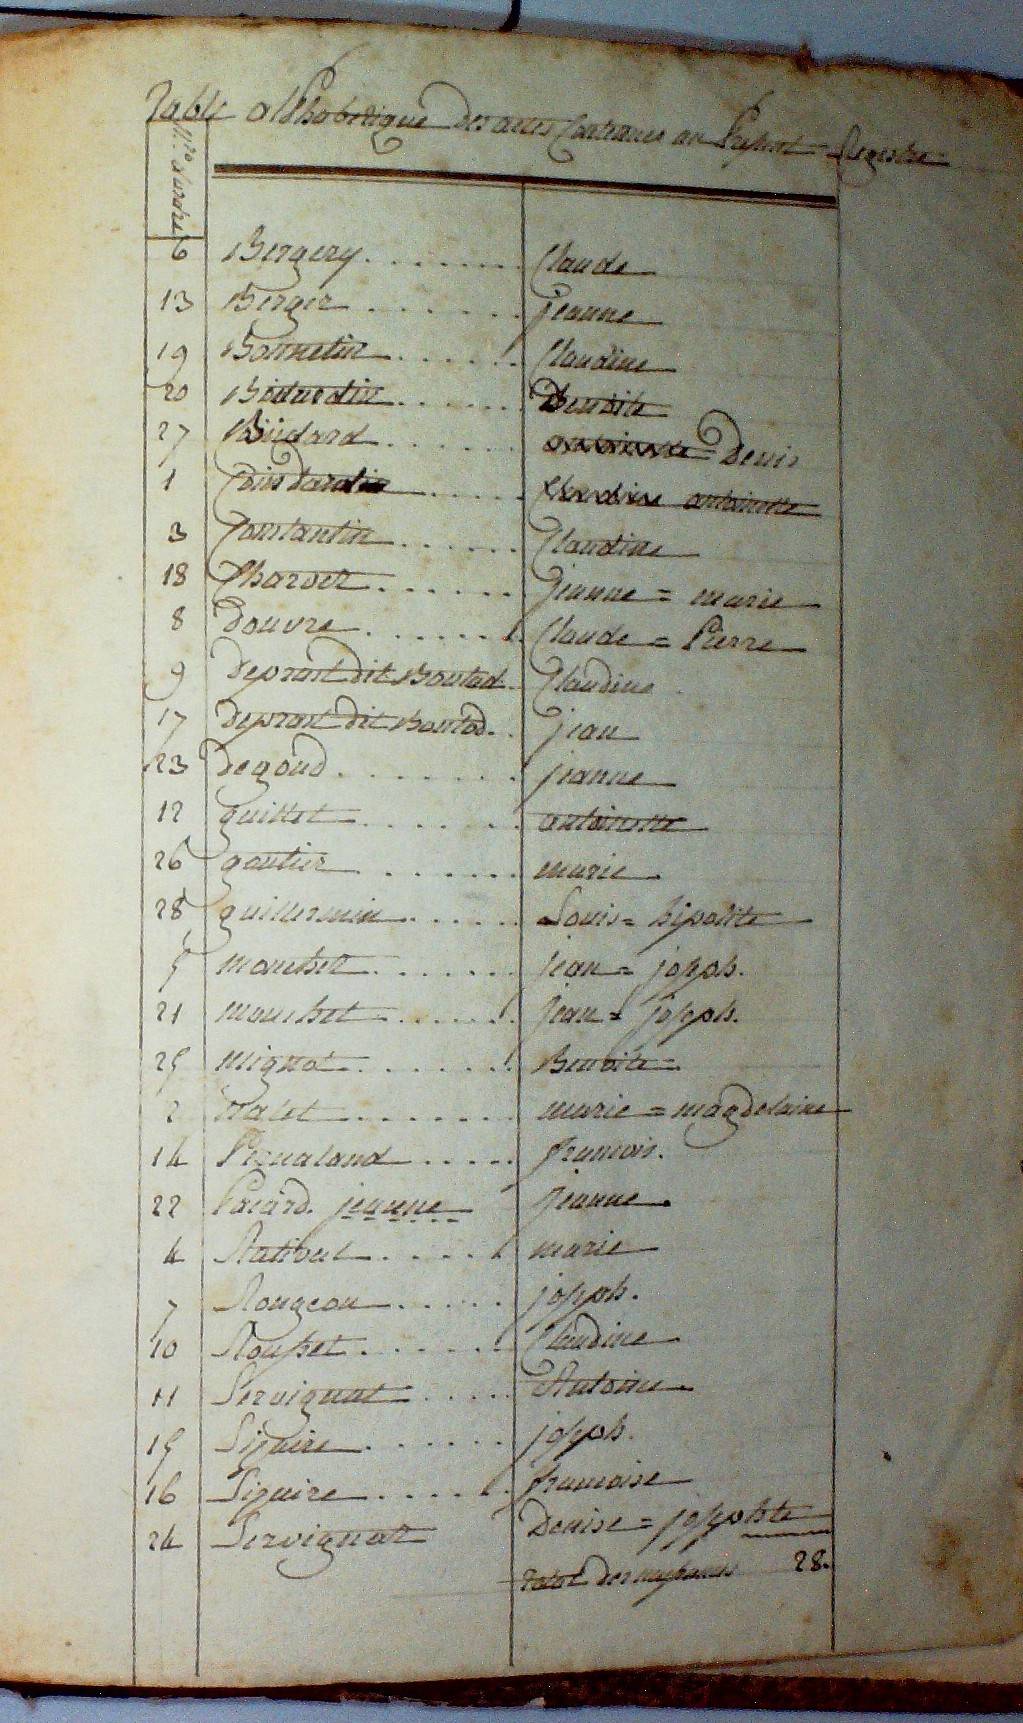 Table alphabetique Des actes Contenues au Present Registre
N.ro d'ordre
6 Bergery Claude
13 Berger jeanne
19 Bonnetin Claudine
20 Benoite
27 Buidard Denis
1 antoinette
3 Constantin Claudine
18 Charvet jeanne = marie
8 Douvre Claude = Pierre
9 Deprost dit Boutad Claudine
17 deprost dit Boutod jean
23 Degoud jeanne
12 guillet antoinette
26 gautier marie
28 guillermin Louis = hipolite
5 monchet jean = joseph.
21 monchet jean = joseph.
25 mignot Benoite =
2 marie = magdelaine
14 francois.
22 Pacard. jeanne jeanne
4 marie
7 Rougeou joseph.
10 Rousset Claudine
11 Servignat Antoine
15 Siguire joseph.
16 Siguire francoise
24 Servignat Denise = josephte
Total des naissances 28.